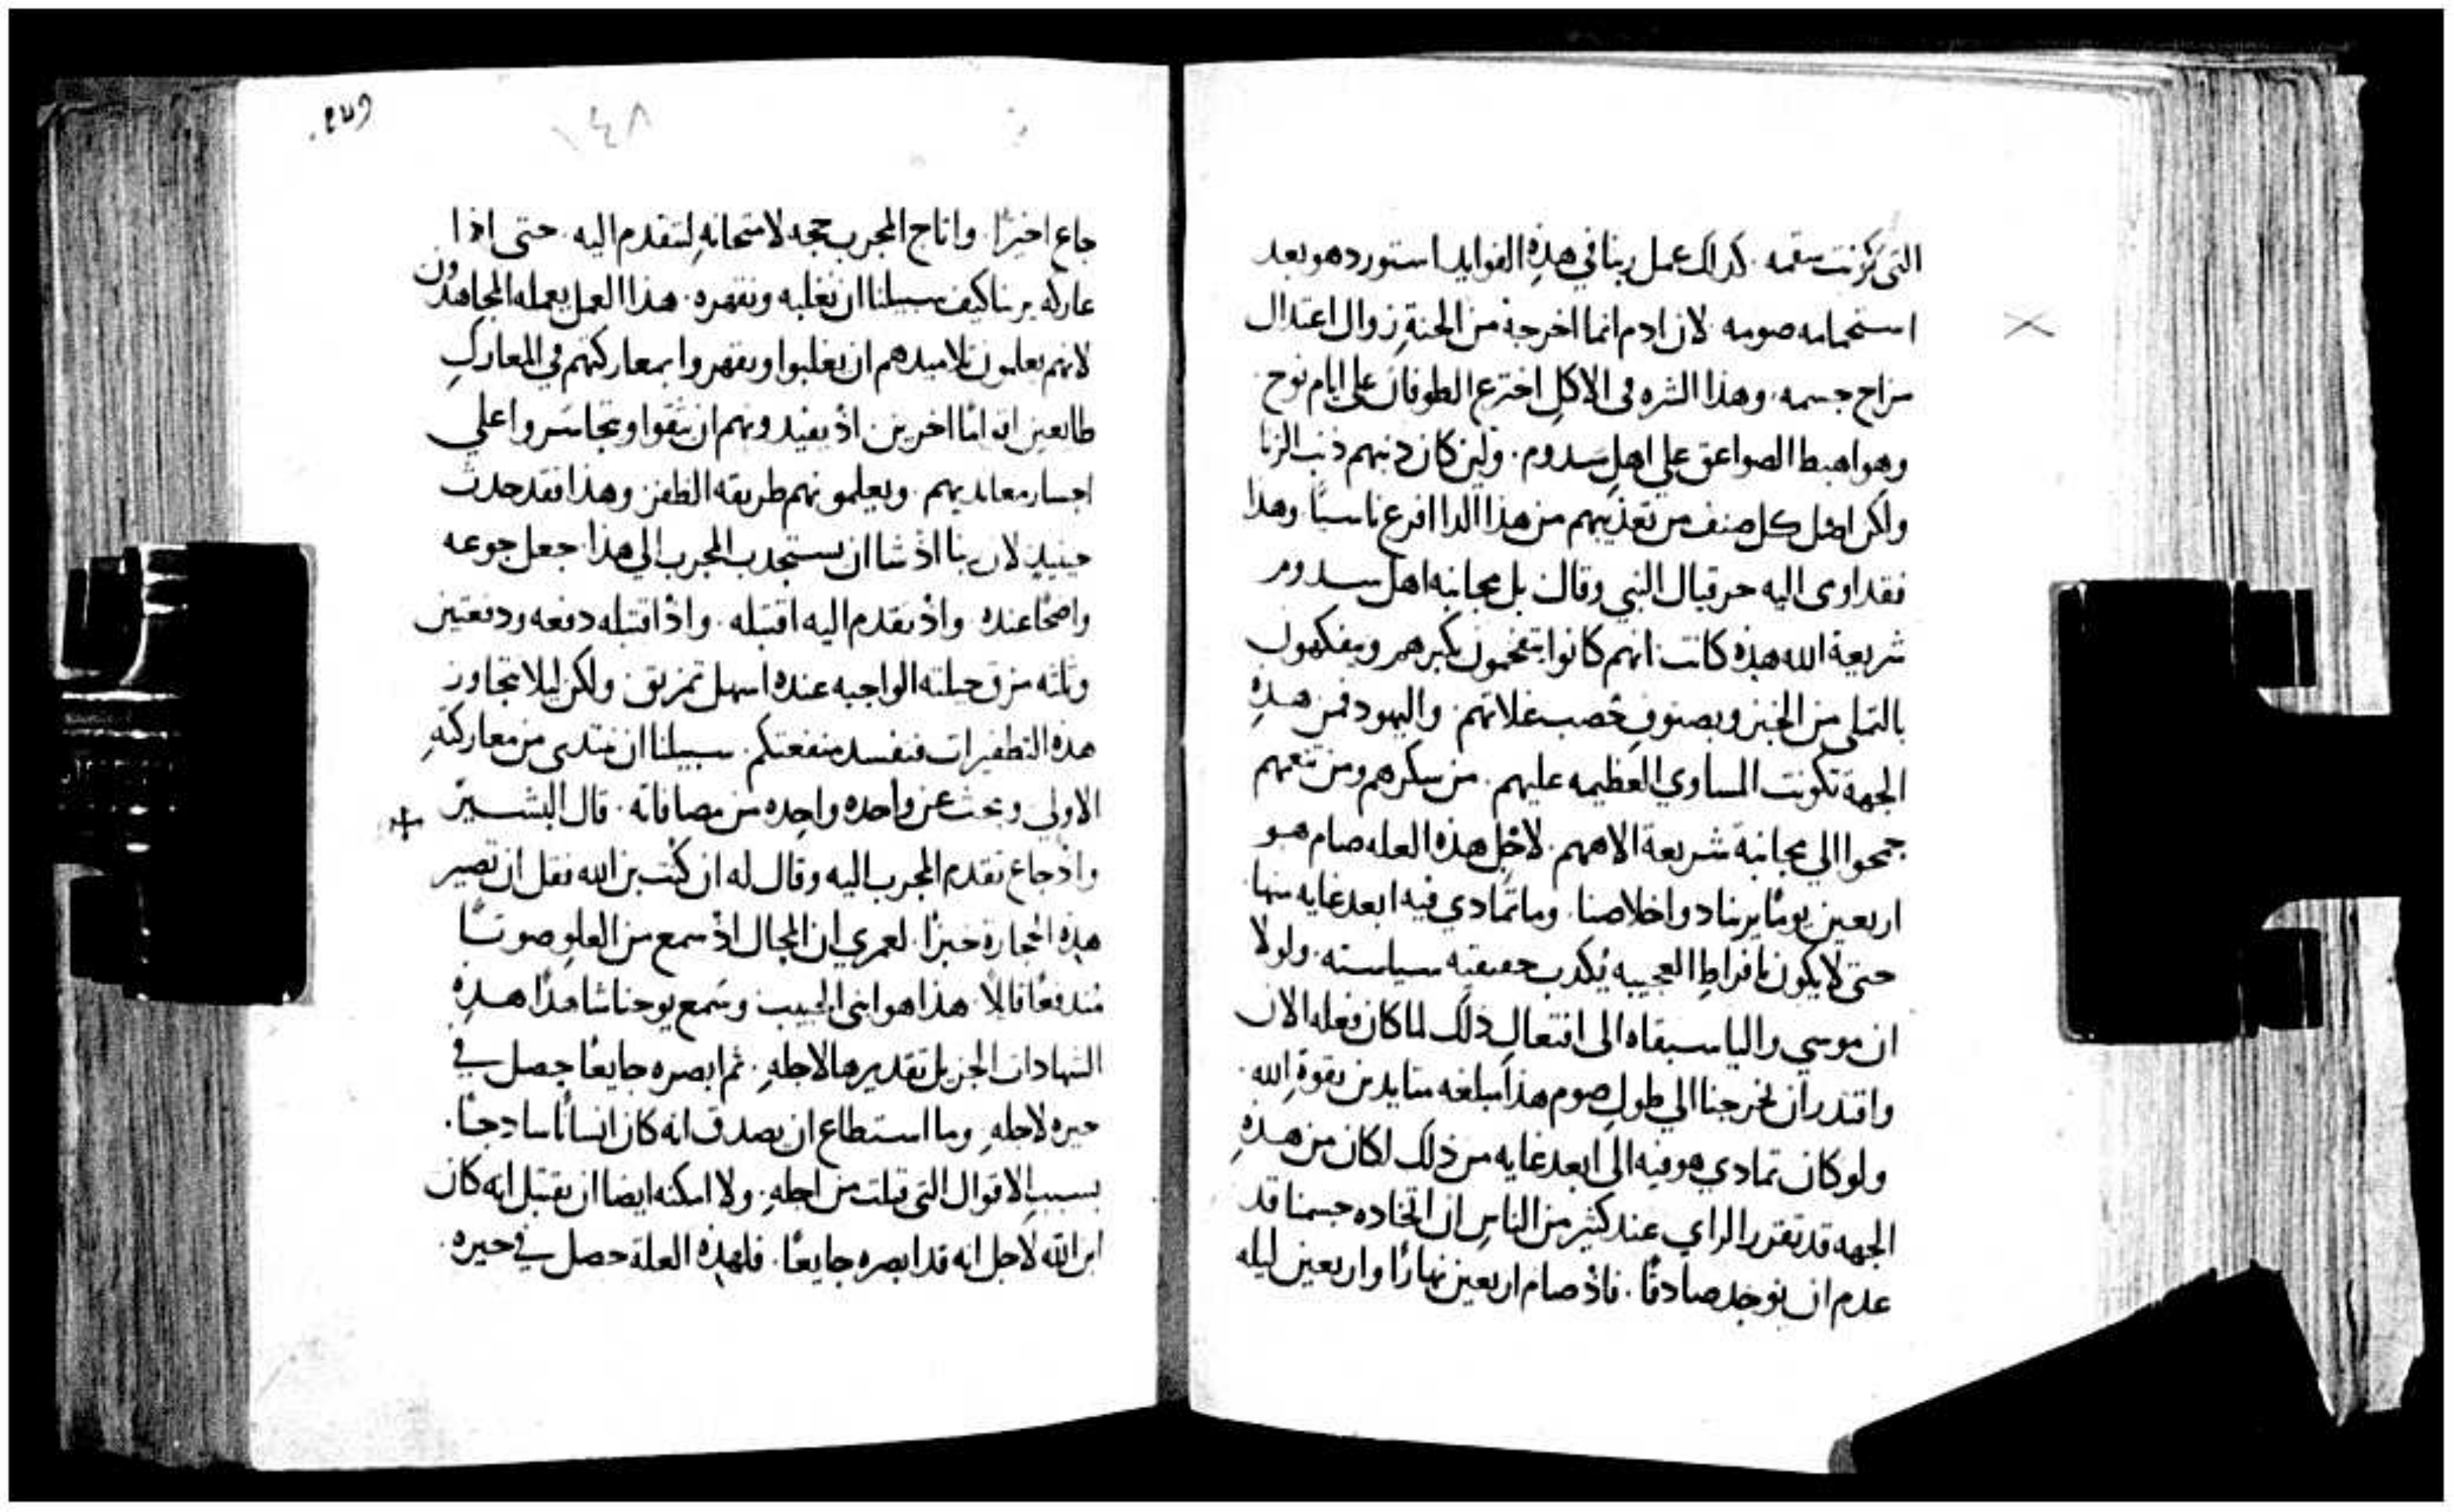 التى كونت سقمه. كذلك عمل ربنا في هذهِ الفوايد استورد هو بعد
استحمامه صومه. لان ادم انما اخرجهُ من الجنةِ زوال اعتدال
مزاج جسمه. وهذا الشره فى الاكلِ اخترع الطوفان على ايام نوح.
وهو اهبط الصواعق على اهلِ سدوم. ولين كان ذنبهم ذنب الزنا
ولكن اصل كل صنف من تعذيبهم من هذا الدا افرع ناسيا. وهذا
فقد اومى اليه حزقيال النبي وقال بل مجانبه اهل سدوم
شريعة الله هذه كانت انهم كانوا يتفخمون بكبرهم ويتفكهون
بالتملى من الخبز وبصنوفِ خصب غلاتهم. واليهود فمن هذهِ
الجهة تكونت المساوي العظيمه عليهم. من سكرهم ومن تنعمهم
جمحوا الي مجانبة شريعة الاههم. لاجل هذه العله صام هو
اربعين يومًا يرينا دوا خلاصنا. وما تمادي فيه ابعد غايه منها.
حتى لا يكون بافراطِ العجيبه يُكذب حقيقته سياسته. ولولا
ان موسي واليا سبقاه الى افتعالِ ذلك لما كان فعله الان
واقتدر ان يخرجنا الي طولِ صوم هذا مبلغه متايدين بقوةِ الله.
ولو كان تمادي هو فيه الى ابعد غايه من ذلك لكان من هذهِ
الجهه قد تقرر الراي عند كثير من الناسِ ان اتخاده جسمنا قد
عدم ان يوجد صادقًا. فاذ صام اربعين نهارًا واربعين ليله
١٤٨
جاع اخيرًا. واتاح المجرب حجه لامتحانهِ لتقدم اليه. حتى اذا
عاركه يرينا كيف سبيلنا ان نغلبه ونقهره. هذا العمل يعمله المجاهدون
لانهم يعلمون تلاميذهم ان يغلبوا ويقهروا بمعاركتهم في المعاركِ
طايعين اناسًا اخرين. اذ يفيدونهم ان يثقوا ويتجاسروا علي
اجسار معانديهم. ويعلمونهم طريقه الظفر وهذا فقد حدث
حينيذٍ لان ربنا اذ شا ان يستجدب المجرب الي هذا جعل جوعه
واضحًا عنده. واذ تقدم اليه اقتبله. واذ اقتبله دفعه ودفعتين
وثلثه مزق حيلته الواجبه عنده اسهل تمزيق. ولكن ليلا نتجاوز
هذه التظفيرات فنفسد منفعتكم. سبيلنا ان نبتدى من معاركتهِ
الاولى ونبحث عن واحده واحده من مصافاته. قال البشير
واذ جاع تقدم المجرب اليه وقال له ان كنت بن الله فقل ان تصير
هذه الحجارة خبزًا. لعمري ان المحال اذ سمع من العلوِ صوتًا
مندفعًا قايلًا هذا هو ابنى الحبيب وسمع يوحنا شاهدًا هذهِ
الشهادات الجزيل تقديرها لاجلهِ. ثم ابصره جايعًا حصل في
حيره لاجلهِ. وما استطاع ان يصدق انه كان انسانًا ساذجًا.
بسببِ الاقوال التى قيلت من اجلهِ. ولا امكنه ايضا ان يقتبل انه كان
ابن الله لاجل انه قد ابصره جايعًا. فلهذه العلة حصل في حيره.